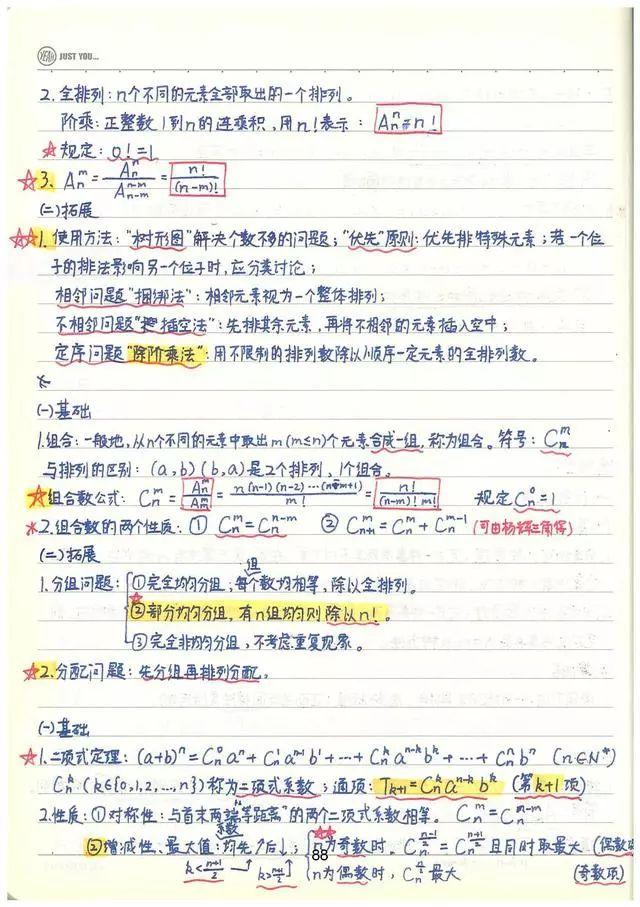 YEAH JUST YOU...
2. 全排列：n个不同的元素全部取出的一个排列。
阶乘：正整数1到n的连乘积，用n!表示：Aₙⁿ=n!
☆规定：0!=1
☆3. Aₙᵐ = Aₙⁿ/Aₙ₋ₘⁿ⁻ᵐ = n!/(n-m)!
(二)拓展
☆☆1. 使用方法："树形图"解决个数不多的问题；"优先"原则：优先排特殊元素；若一个位
子的排法影响另一个位子时，应分类讨论；
相邻问题"捆绑法"：相邻元素视为一个整体排列；
不相邻问题"插空法"：先排其余元素，再将不相邻的元素插入空中；
定序问题"除阶乘法"：用不限制的排列数除以顺序一定元素的全排列数。
(一)基础
1.组合：一般地，从n个不同的元素中取出m(m≤n)个元素合成一组，称为组合。符号：Cₙᵐ
与排列的区别：(a,b)(b,a)是2个排列，1个组合。
☆组合数公式：Cₙᵐ = Aₙᵐ/Aₘᵐ = n(n-1)(n-2)…(n-m+1)/m! = n!/(n-m)!m! 规定Cₙ⁰=1
*2.组合数的两个性质：① Cₙᵐ=Cₙⁿ⁻ᵐ ② Cₙ₊₁ᵐ=Cₙᵐ+Cₙᵐ⁻¹ (可由杨辉三角得)
(二)拓展
1.分组问题：①完全均匀分组，每组个数均相等，除以全排列。
☆②部分均匀分组，有n组均匀则除以n!。
③完全非均匀分组，不考虑重复现象。
☆2.分配问题：先分组再排列分配。
(一)基础
☆1.二项式定理：(a+b)ⁿ=Cₙ⁰aⁿ+Cₙ¹aⁿ⁻¹b¹+…+Cₙᵏaⁿ⁻ᵏbᵏ+…+Cₙⁿbⁿ (n∈N*)
Cₙᵏ(k∈{0,1,2,…,n})称为二项式系数；通项：Tₖ₊₁=Cₙᵏaⁿ⁻ᵏbᵏ (第k+1项)
2.性质：①对称性：与首末两端"等距离"的两个二项式系数相等。Cₙᵐ=Cₙⁿ⁻ᵐ
②增减性、最大值：系数均先↑后↓；☆☆n为奇数时，Cₙ^((n-1)/2)=Cₙ^((n+1)/2)且同时取最大 (偶数项)
k<(n+1)/2 → k>(n+1)/2 n为偶数时，Cₙ^(n/2)最大 (奇数项)
88